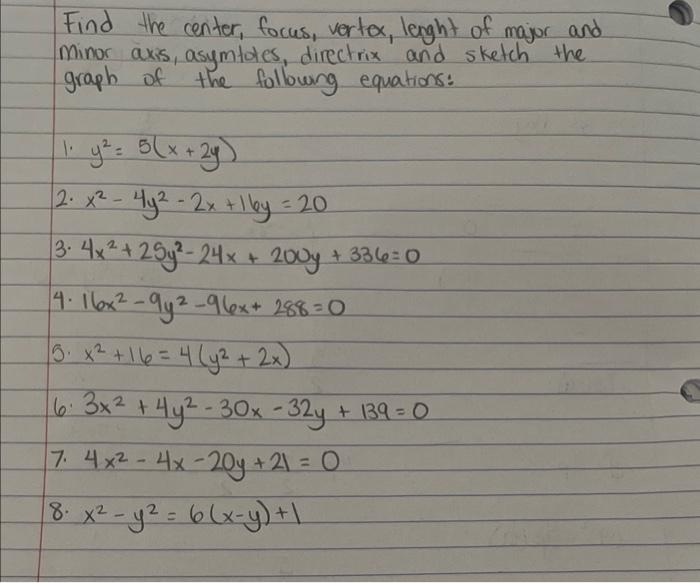 Find the center, focus, vertex, lenght of major and
minor axis, asymtotes, directrix and sketch the
graph of the following equations:
1. y² = 5(x + 2y)
2. x² - 4y² - 2x + 16y = 20
3. 4x² + 25y² - 24x + 200y + 336 = 0
4. 16x² - 9y² - 96x + 288 = 0
5. x² + 16 = 4(y² + 2x)
6. 3x² + 4y² - 30x - 32y + 139 = 0
7. 4x² - 4x - 20y + 21 = 0
8. x² - y² = 6(x-y) + 1